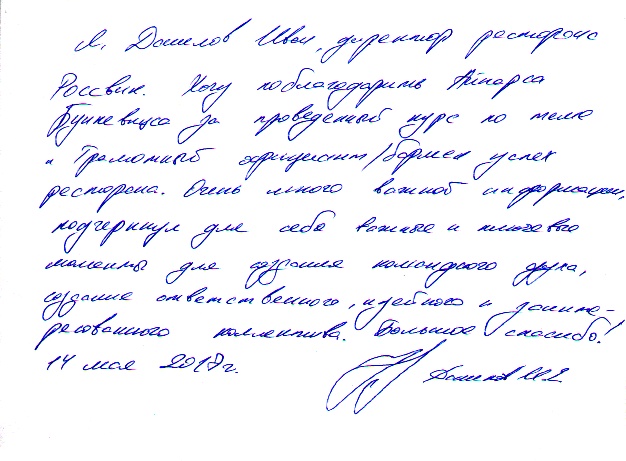 Я, Данилов Иван, директор ресторана
Россвик. Хочу поблагодарить Айнарса
Бункевицса за проведенный курс по теме
"Грамотный официант/бармен успех
ресторана. Очень много важной информации,
подчеркнул для себя важные и ключевые
моменты для создания командного духа,
создание ответственного, идейного и заинте-
ресованного коллектива. Большое спасибо!
14 мая 2017г. Данилов И.